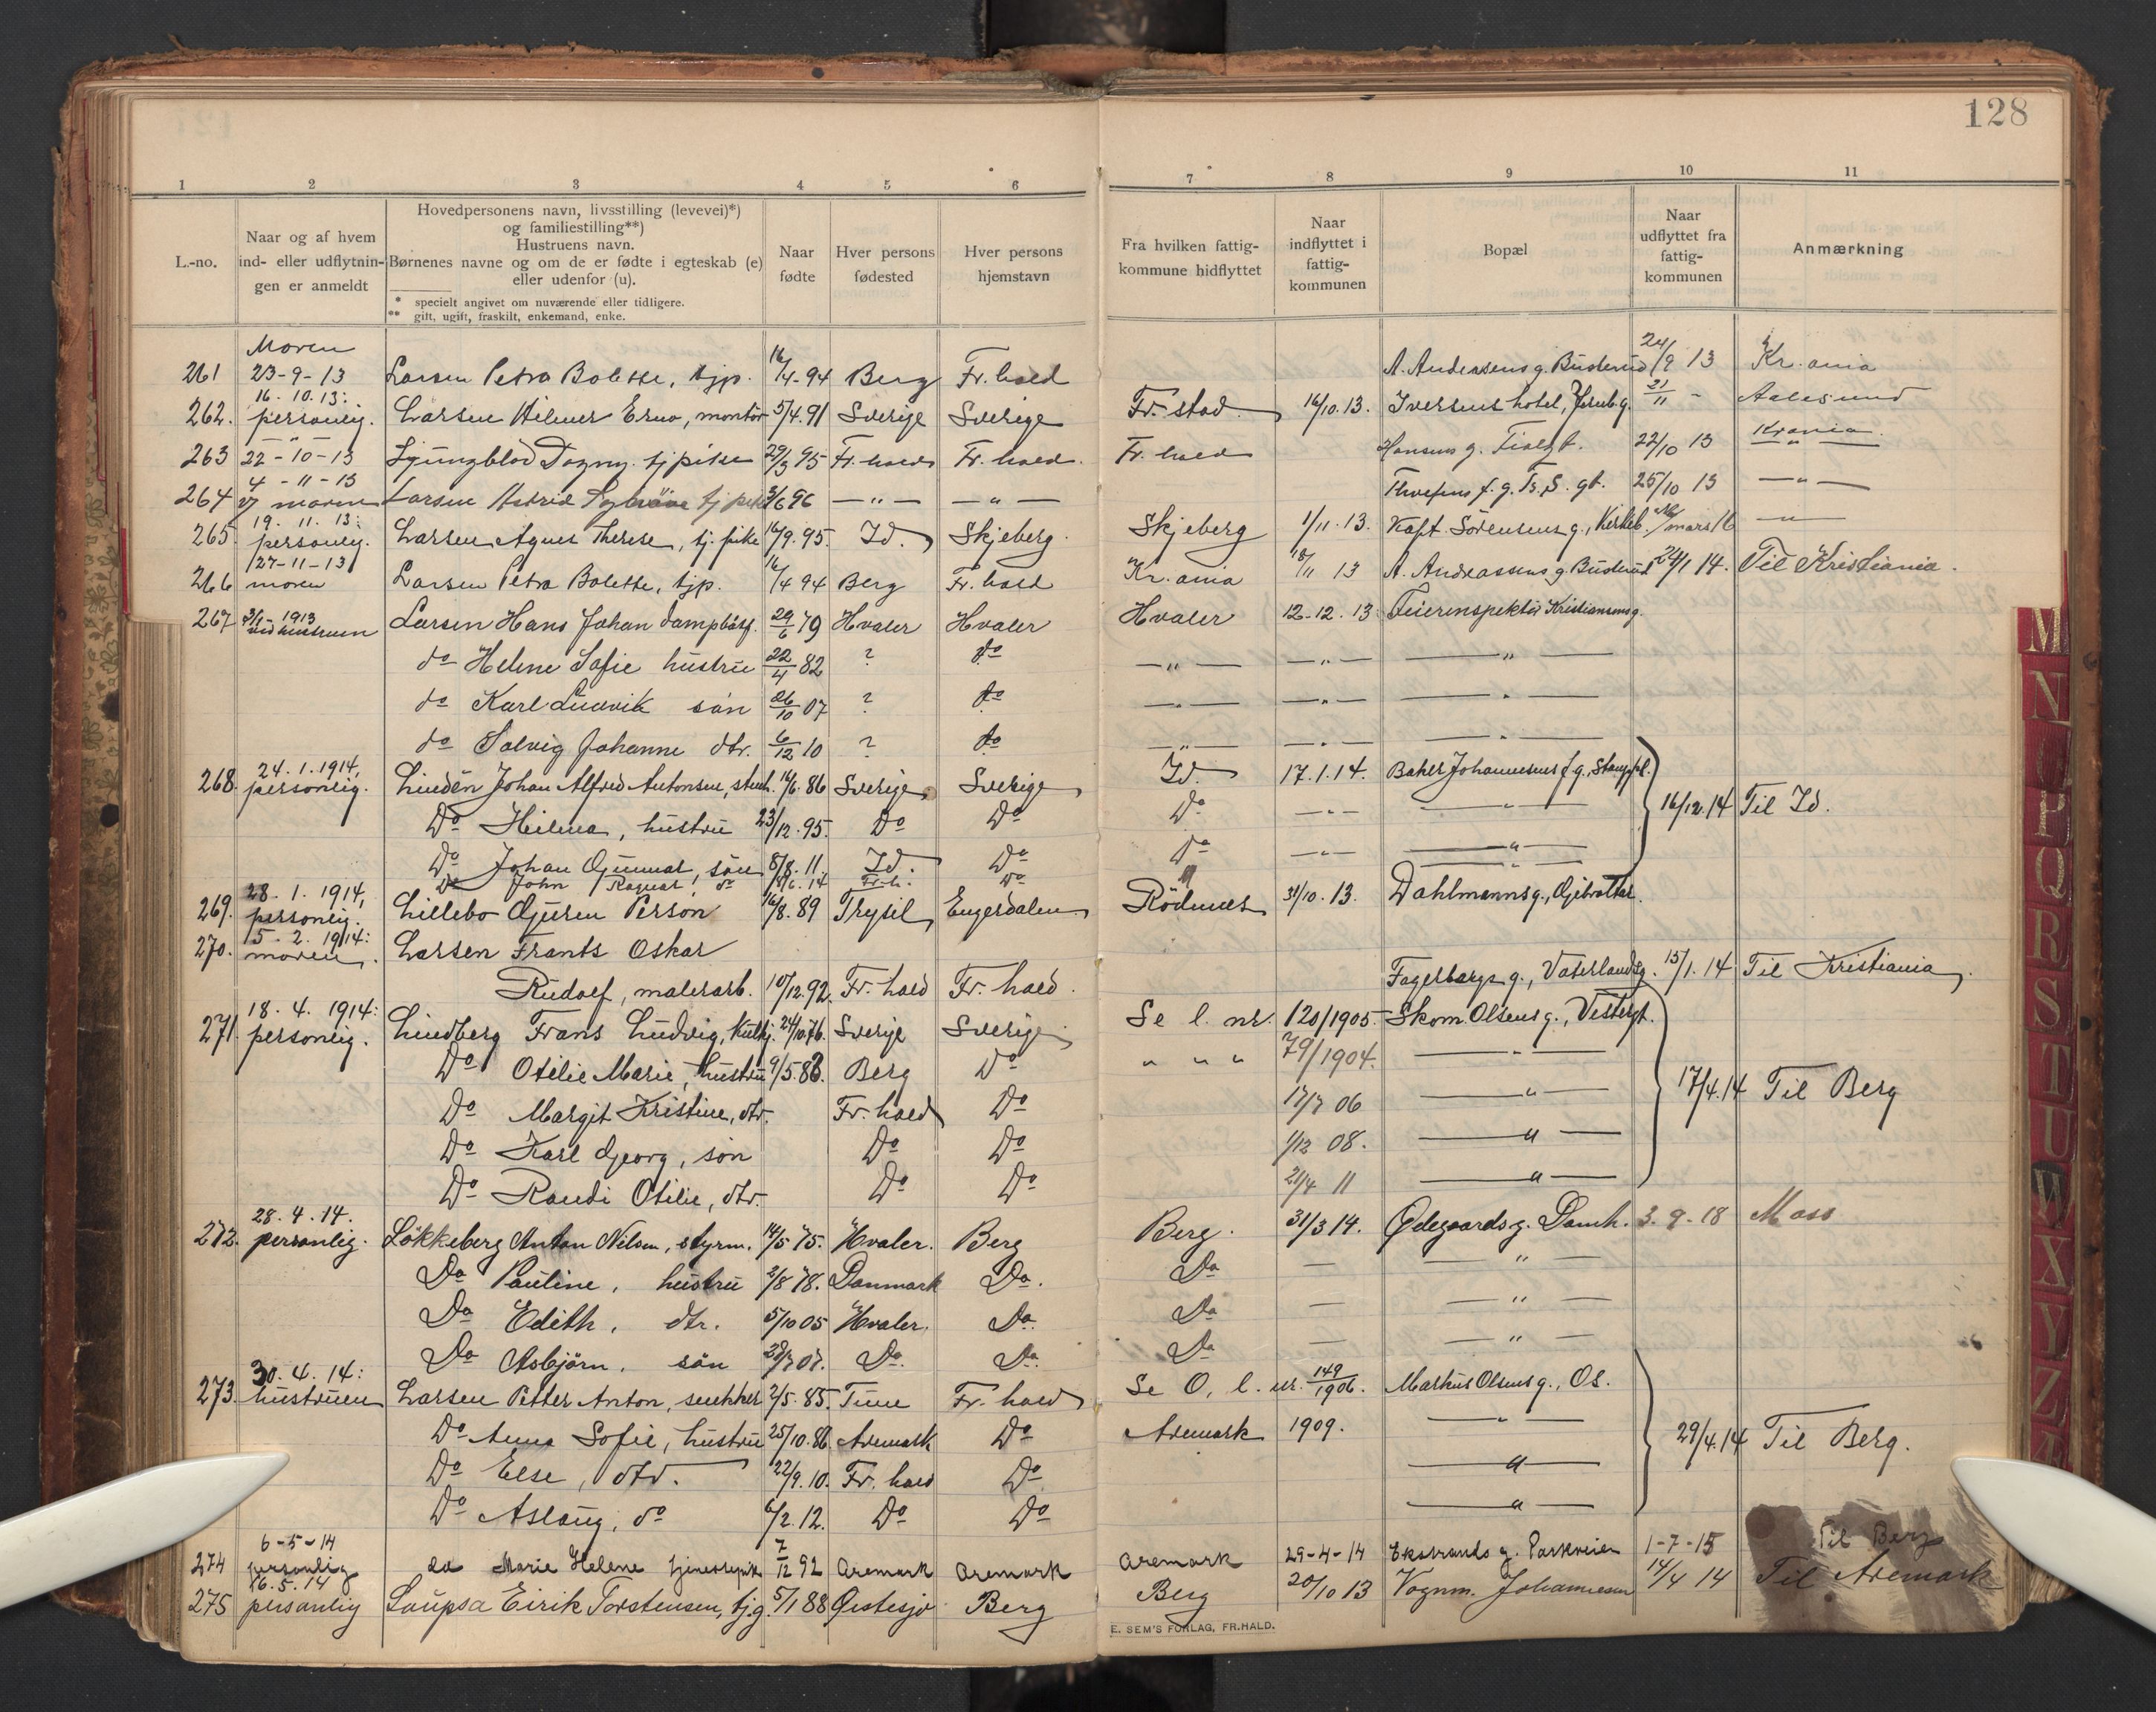 128
1 2 3 4 5 6 7 8 9 10 11
L.-no.
Naar og af hvem ind- eller udflytningen er anmeldt
Hovedpersonens navn, livsstilling (levevei)*)
og familiestilling**)
Hustruens navn.
Børnenes navne og om de er fødte i egteskab (e)
eller udenfor (u).
* specielt angivet om nuværende eller tidligere.
** gift, ugift, fraskilt, enkemand, enke.
Naar fødte
Hver persons fødested
Hver persons hjemstavn
Fra hvilken fattigkommune hidflyttet
Naar indflyttet i fattigkommunen
Bopæl
Naar udflyttet fra fattigkommunen
Anmærkning
261 Moren 23-9-13 Larsen Petra Bolette, tjp. 16/4-94 Berg Fr.hald A. Andersens g. Buderud 24/9 13 Kr.ania
262. 16.10.13: personlig. Larsen Hilmer Erno, montör 5/4.91 Sverige Sverige Fr.stad 16/10.13. Iversens hotel, Jernb.g. 21/11 - Aalesund
263 22-10-13 Ljungblod Dagny. tjpike 29/3 95 Fr.hald Fr.hald. Fr.hald Hansens g. 22/10 13 Krania
264 4-11-13 v/ moren Larsen Astrid tjpike 3/6 96 — " — — " — 25/10 13 — " —
265. 19.11.13: personlig. Larsen Agnes Therese, tj.pike 16/9.95. Id. Skjeberg. Skjeberg 1/11.13. Kapt. Sörensens g., Kirkeb. mars 16 — " —
266 27-11-13 moren Larsen Petra Bolette, tjp. 16/4 94 Berg Fr.hald Kr.ania 18/11 13 A. Andreassens g Buderud 24/1 14. Til Kristiania.
267 3/1-1913 ved hustruen Larsen Hans Johan dampbåtf. 29/6 79 Hvaler Hvaler Hvaler 12-12.13. Feierinspektör Kristiansens g.
do Helene Sofie hustru 22/4 82 ? do — " — — " — — " —
do Karl Ludvik sön 26/10 07 ? do — " — — " — — " —
do Solvig Johanne dtr. 6/12 10 ? do — " — — " — — " —
268. 24.1.1914, personlig. Lindén Johan Alfred Antonsen, stenh. 16/6.86 Sverige Sverige Id. 17.1.14. Baker Johannesens f.g., Stampfl.
Do Hilma, hustru 23/12.95. Do Do Do — " — — " — 16/12.14 Til Id.
Do Johan Gunnar, sön 8/8.11. Id. Do Do — " — — " —
Do John Ragnar, do /6.14 Fr.h. Do — " —
269. 28.1.1914, personlig. Lillebo Gjuren Person 16/8.89 Trysil Engerdalen Rödenes 31/10.13. Dahlmanns g., Gjibralter.
270. 5.2.1914: moren. Larsen Frants Oskar
Rudolf, malerarb. 10/12.92. Fr.hald Fr.hald. Fagerbergs g., Vaterlandsg. 15/1.14 Til Kristiania.
271. 18.4.1914: personlig. Lindberg Frans Ludvig, 24/10.76. Sverige Sverige Se l. nr. 120/1905. Skom. Olsens g., Vestergt.
Do Otilie Marie, hustru 9/5.83. Berg Do " " " 79/1904. — " —
Do Margit Kristine, dtr. Fr.hald Do 17/7 06 — " — 17/4.14 Til Berg
Do Karl Georg, sön Do Do 1/12 08. — " —
Do Randi Otilie, dtr. Do Do 21/4 11 — " —
272. 28.4.14. personlig. Lökkeberg Anton Nilsen, styrm. 14/5 75. Hvaler. Berg Berg. 31/3 14. Ödegaards g. Damh. 3.9-18 Moss
Do Pauline, hustru 2/8 78. Danmark Do. Do — — " —
Do Edith, dtr. 5/10 05 Hvaler. Do. Do — — " —
Do Asbjörn, sön 28/7 07. Do. Do. Do — — " —
273. 30.4.14: hustruen Larsen Petter Anton, snekker 2/5.85. Tune Fr.hald Se O, l. nr. 149/1906. Markus Olsens g., Os.
Do Anna Sofie, hustru 25/10.86. Aremark Do Aremark 1909. — " — 29/4.14 Til Berg.
Do Else, dtr. 22/9.10. Fr.hald Do — " —
Do Aslaug, do 6/2.12. Do Do — " —
274 6-5-14 personlig da Marie Helene tjenestepik 7/12 92 Aremark Aremark Aremark 29-4-14 Ekstrands g. Parkveien 1-7-15 Til Berg
275 16.5.14 personlig Laupsa Eirik Torstensen, tj.g. 5/1 88 Østesjø Berg Berg 20/10 13 Vognm. Johannesen 14/4 14 Til Aremark
E. SEM'S FORLAG, FR.HALD.
M
N
P
Q
R
S
T
U
W
X
Y
Z